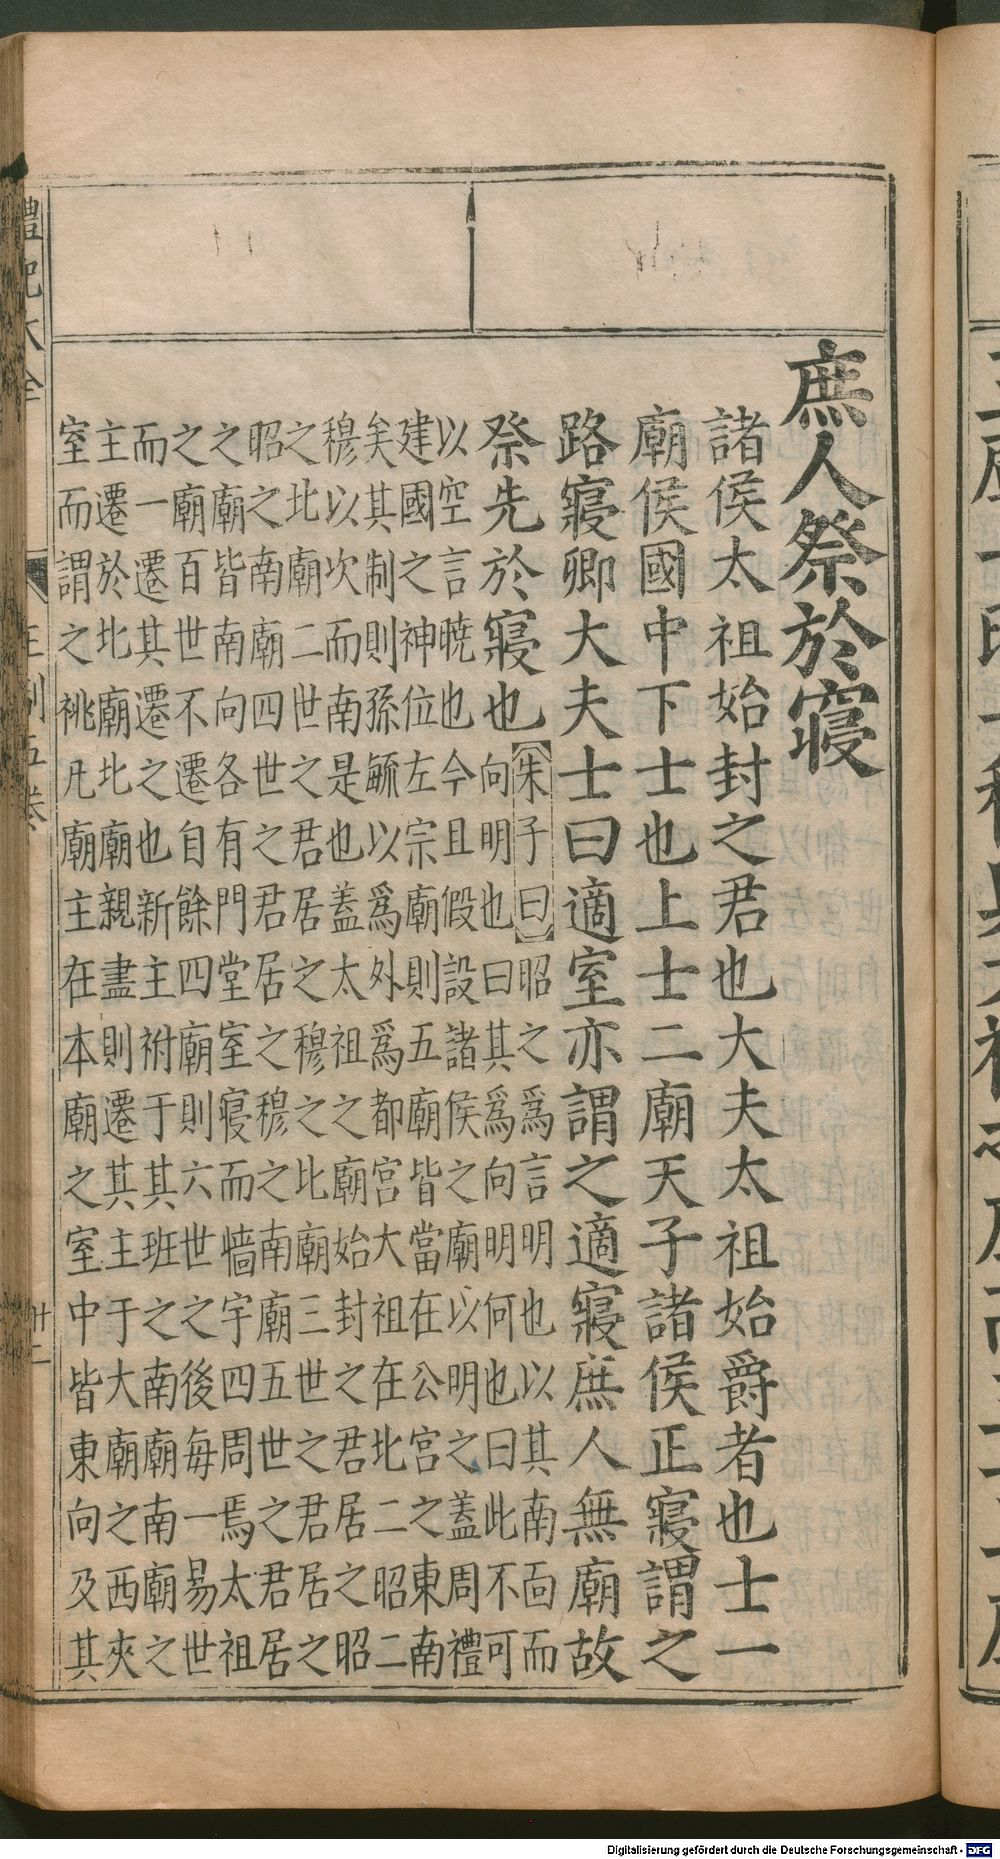 庶人祭於寢
諸侯太祖始封之君也大夫太祖始爵者也士一
廟侯國中下士也上士二廟天子諸侯正寢謂之
路寢卿大夫士曰適室亦謂之適寢庶人無廟故
祭先於寢也
朱子曰昭之爲言明也以其南面而
向明也曰其爲向明何也曰此不可
以空言曉也今且假設諸侯之廟以明之蓋周禮
建國之神位左宗廟則五廟皆當在公宮之東南
矣其制則孫毓以爲外爲都宮大祖在北二昭二
穆以次而南是也蓋太祖之廟始封之君居之昭
之北廟二世之君居之穆之北廟三世之君居之
昭之南廟四世之君居之穆之南廟五世之君居
之廟皆南向各有門堂室寢而牆宇四周焉太祖
之廟百世不遷自餘四廟則六世之後每一易世
而一遷其遷之也新主祔于其班之南廟南廟之
主遷於北廟北廟親盡則遷其主于大廟之西夾
室而謂之祧凡廟主在本廟之室中皆東向及其
禮記大全
王制五卷
廿二
Digitalisierung gefördert durch die Deutsche Forschungsgemeinschaft - DFG